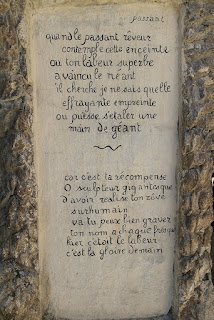 passant
quand le passant rêveur
contemple cette enceinte
ou ton labeur superbe
a vaincu le néant
il cherche je ne sais quelle
effrayante empreinte
ou puisse s'etaler une
main de géant
car c'est la récompense
O sculpteur gigantesque
d'avoir realisé ton rêve
surhumain
va tu peux bien graver
ton nom a chaque fresque
hier c'etoit le labeur
c'est la gloire demain